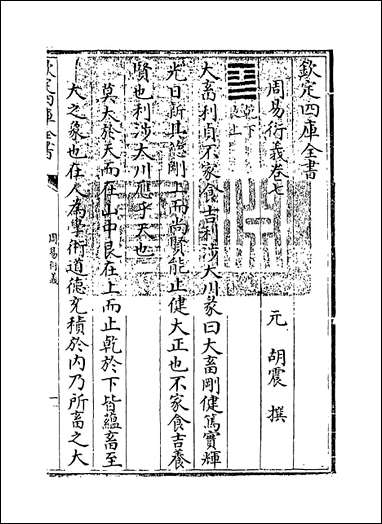 欽定四庫全書
周易衍義卷七
元 胡震 撰
乾下
艮上
大畜利貞不家食吉利涉大川彖曰大畜剛健篤實輝
光日新其德剛上而尚賢能止健大正也不家食吉養
賢也利涉大川應乎天也
莫大於天而在山中艮在上而止乾於下皆蘊畜至
大之象也在人為學術道德充積於内乃所畜之大
欽定四庫全書
周易衍義
一